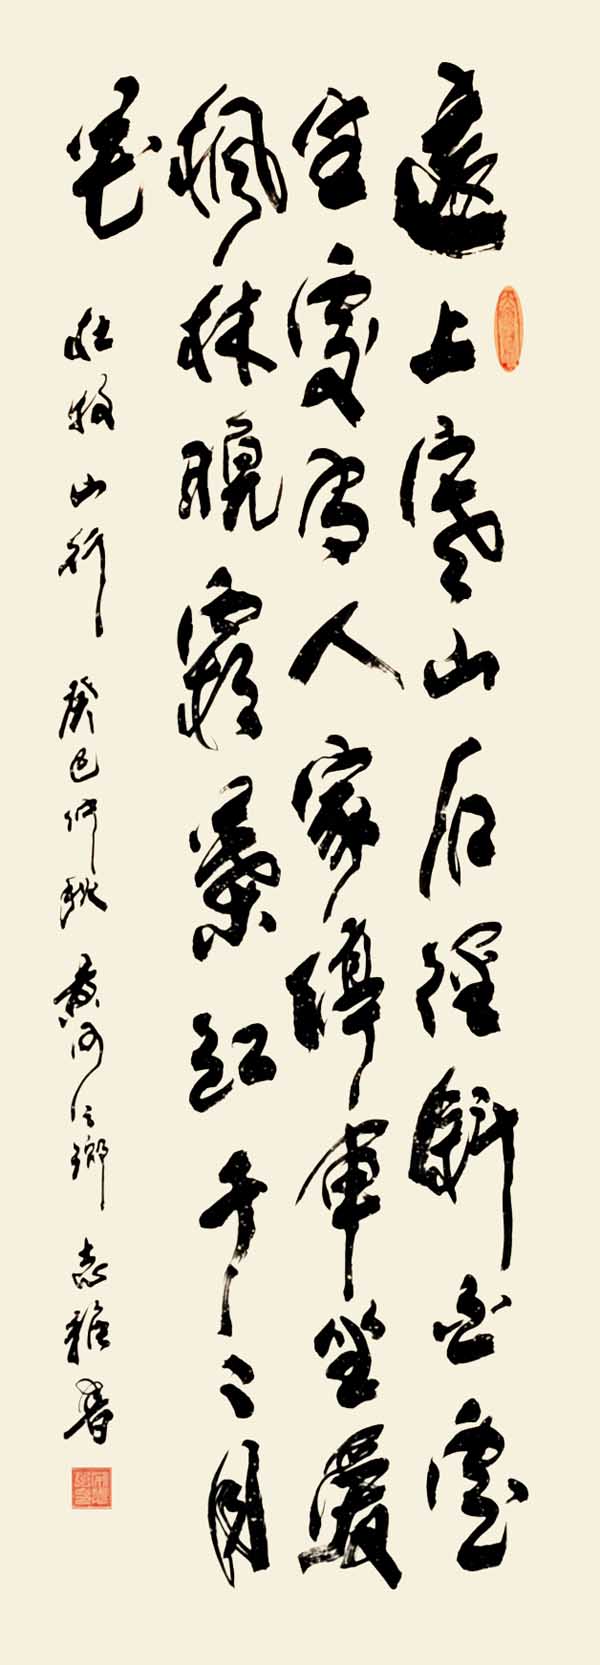 遠上寒山石徑斜白雲
生處有人家停車坐愛
楓林晚霜葉紅于二月
花 杜牧山行 癸巳仲秋 黄河之鄉 志雅書